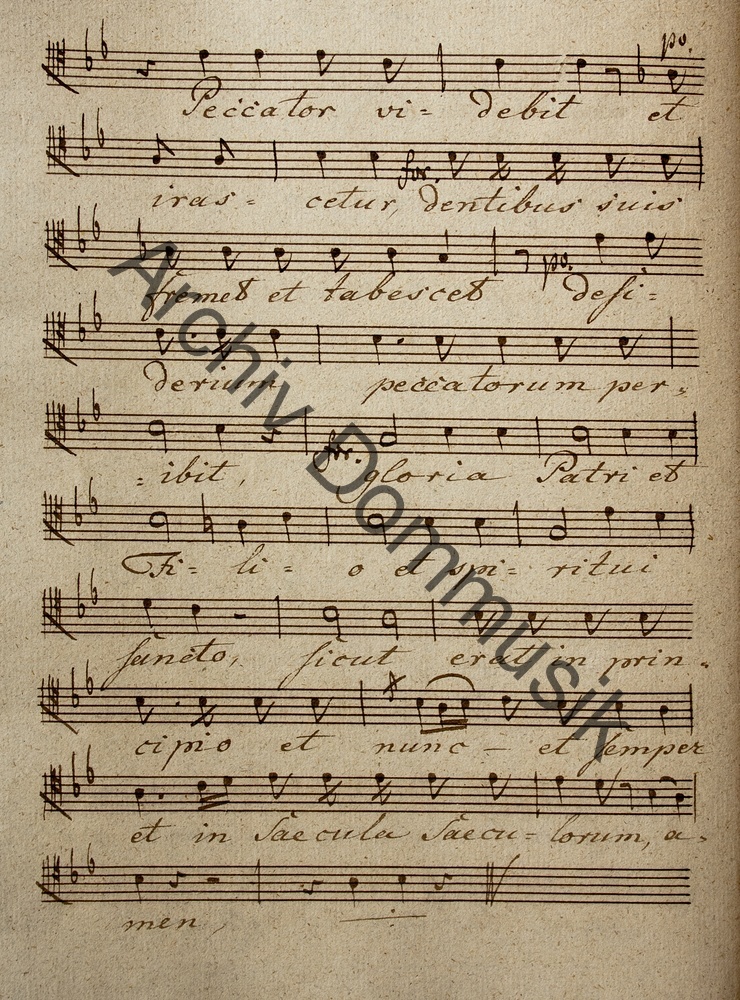 po.
Peccator vi= debit et
for.
iras= cetur, dentibus suis
po.
fremet et tabescet desi=
derium peccatorum per=
for.
=ibit, gloria Patri et
Fi= li= o et spi= ritui
sancto, sicut erat in prin=
cipio et nunc – et semper
et in saecula saecu= lorum, a=
men,
Archiv Dommusik